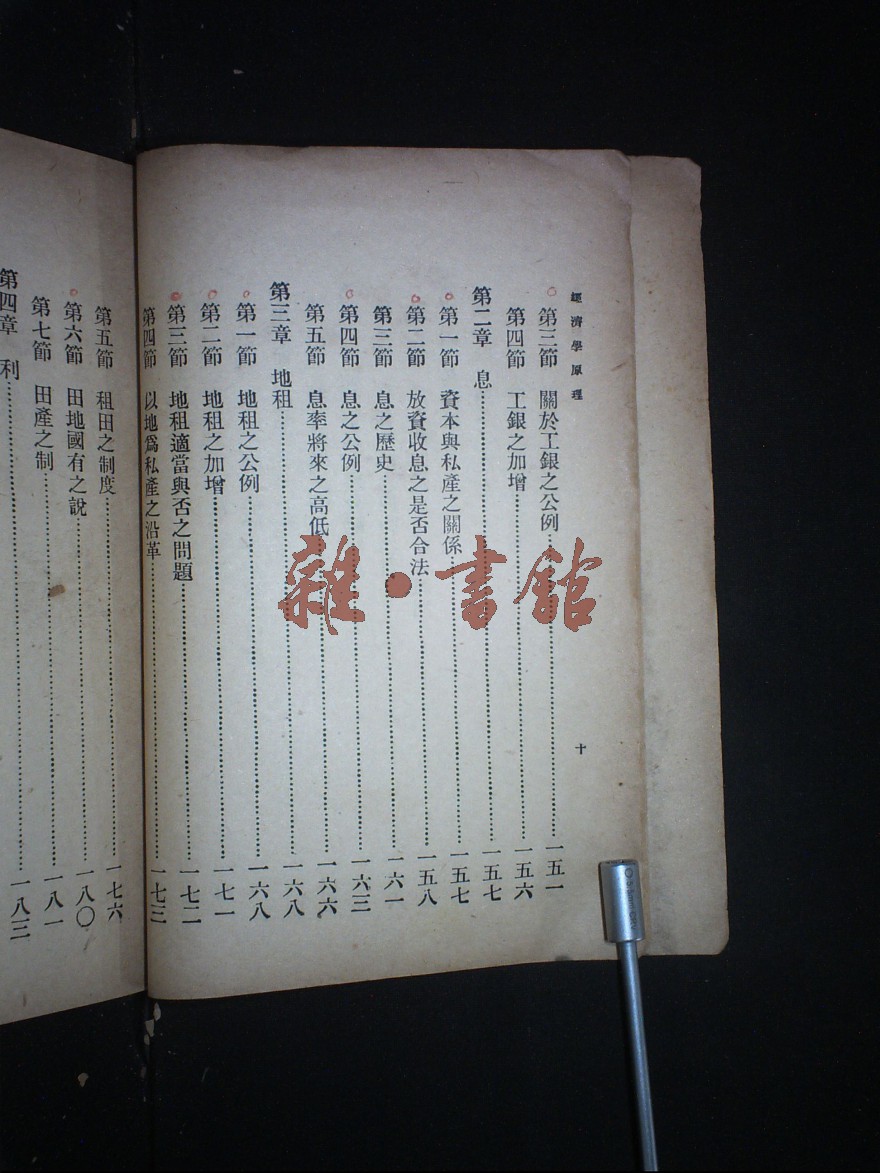 經濟學原理
十
第三節 關於工銀之公例……一五一
第四節 工銀之加增……一五六
第二章 息……一五七
第一節 資本與私產之關係……一五七
第二節 放資收息之是否合法……一五八
第三節 息之歷史……一六一
第四節 息之公例……一六三
第五節 息率將來之高低……一六六
第三章 地租……一六八
第一節 地租之公例……一六八
第二節 地租之加增……一七一
第三節 地租適當與否之問題……一七二
第四節 以地爲私產之沿革……一七三
第五節 租田之制度……一七六
第六節 田地國有之說……一八〇
第七節 田產之制……一八一
第四章 利……一八三
雜·書館